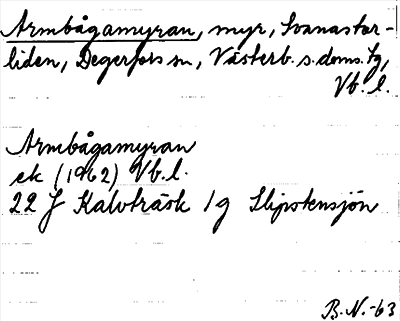 Armbågamyran, myr, Svanastor-
liden, Degerfors sn, Västerb. s. doms. tg,
Vb. l.
Armbågamyran
ek (1962) Vb. l.
22 J Kalvträsk 1 g Slipstensjön
B.N.-63